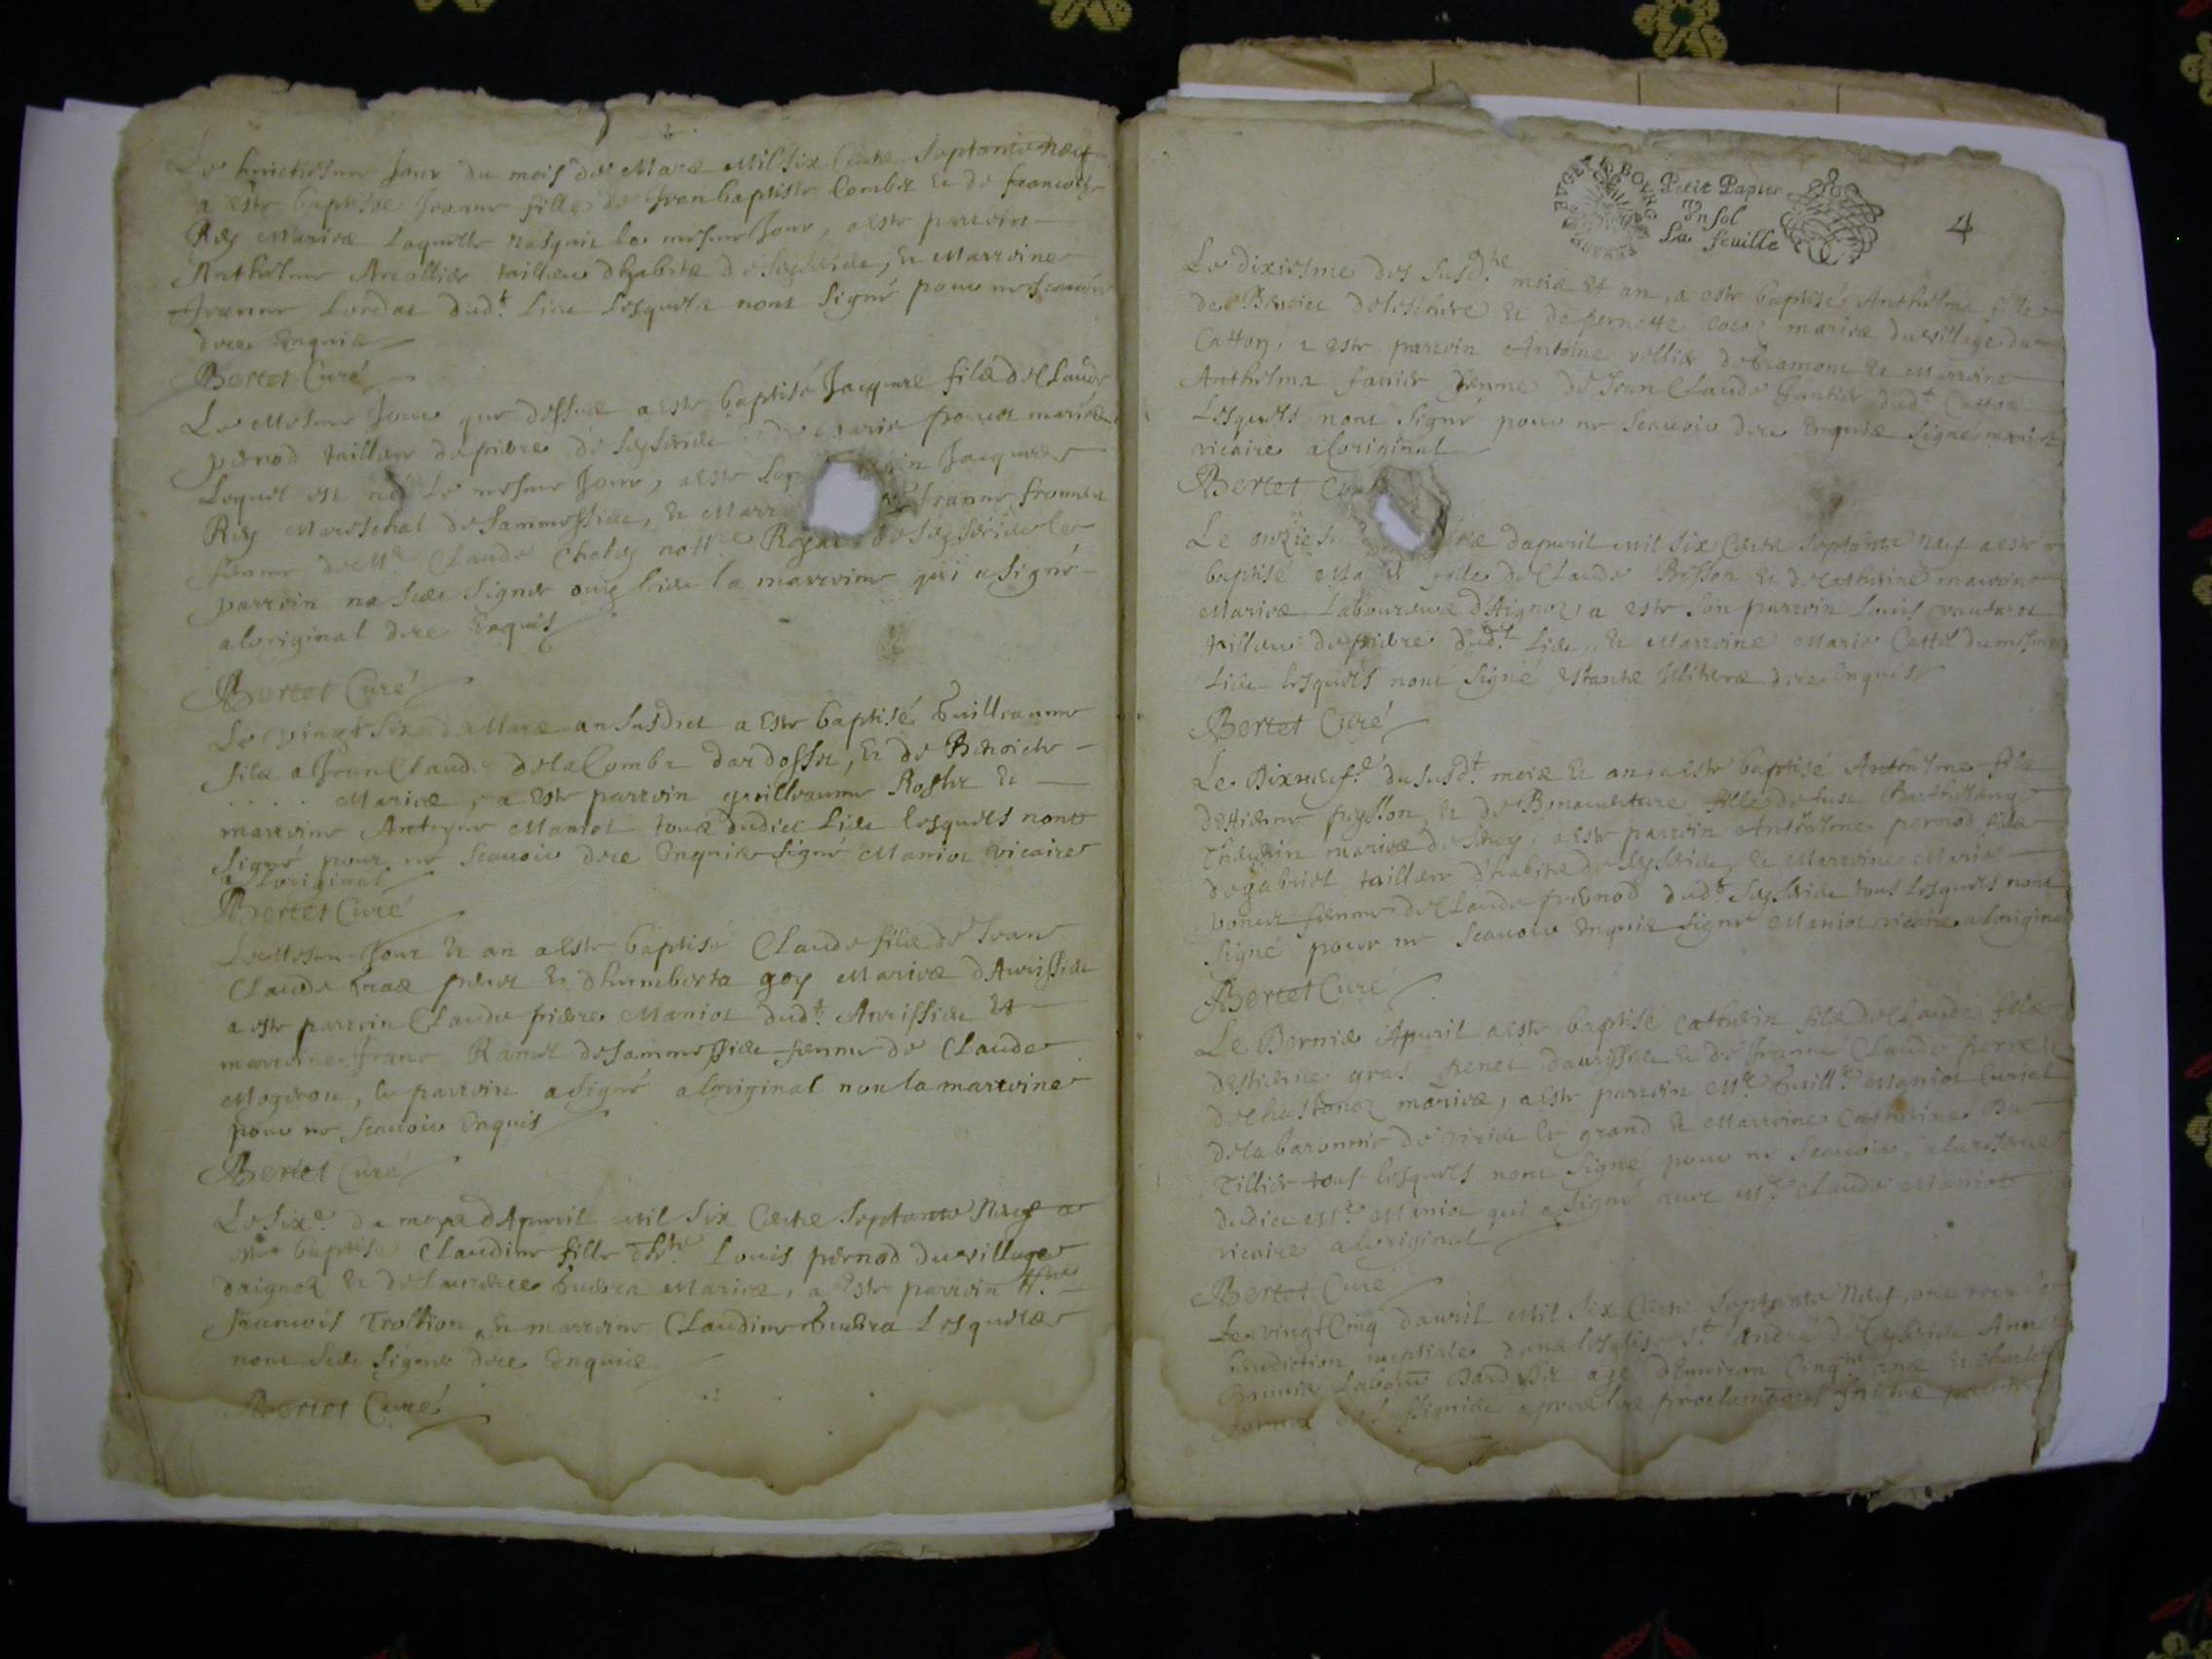 Le huictiesme Jour du mois de Mars Mil six Cents Septante Neuf
a este baptisee Jeanne fille de Jean baptiste Combet et de francoise
Rey Mariés laquelle nasquit le mesme Jour, a este parrein
Anthelme tailleur dhabits de Seysserieu, et Marreine
Jeanne dudt. Lieu Lesquels nont Signé pour ne Scauoir
de ce Enquis
Bertet Curé
Le Mesme Jour que dessus a este baptisé Jacques fils de Claude
pernod tailleur de pierre de Seysserieu marie mariés
Lequel est né Le mesme Jour, a este Jacques
Rey Mareschal de Sammessieu, et Marr Jeanne froment
femme de Mre Claude Chaley nottre Royal de Seysserieu le
parrein na sceu Signer ouy bien la marreine qui a signé
a loriginal de ce Enquis
Bertet Curé
Le vingt six de Mars an Susdict a este baptisé Guilleaume
fils a Jean Claude de la Combe dardosset, et de Benoicte
. . . . . Mariés, a este parrein guilleaume Rosset et
marreine Antoyne Maniot tous dudict Lieu lesquels nont
Signé pour ne Scauoir de ce Enquis Signé Maniot vicaire
a Loriginal
Bertet Curé
Le Mesme Jour et an a este baptisé Claude fils de Jean
Claude gras penet et dhumberta goy Mariés dAvrissieu
a este parrein Claude pierre Maniot dudt. Avrissieu et
marreine Jeane Ramel de Sammessieu femme de Claude
Mogeron, le parrein a signé a loriginal non la marreine
pour ne Scauoir Enquis
Bertet Curé
Le sixe. du moys dApvril Mil Six Cents Septante Neuf a
este baptisée Claudine fille dhte. Louis pernod du village
daignoz et de Laurence Mariés, a este parrein
francois Trollion et marreine Claudine Lesquels
nont sceu signer de ce Enquis
Bertet Curé
BVGEY BOVRG
Petit Papier
Un sol
La feuille
4
Le dixiesme des susd.ts mois et an, a este baptisé Anthelma fille
de Benoict et de pernette mariés du village du
Catton, a este parrein Antoine vellier de cramont et Marreine
Anthelma femme de Jean Claude dudt Catton
Lesquels nont Signé pour ne Scauoir de ce Enquis Signé maniot
vicaire a loriginal
Bertet
Le onziesme dapuril Mil Six Cents Septante Neuf a este
baptisé fille de Claude Bisson et de catherine
Mariés Laboureurs d'Aignoz, a este Son parrein Louis
tailleur de pierre dudt. Lieu, et Marreine Marie Cattel du mesme
Lieu lesquels nont Signé Estants Illiterés de ce Enquis
Bertet Curé
Le Dixneufe. du susdt. mois et an a este baptisé Anthelme fils
dEstienne et de Bonauenture fille de feu Barthelemy
Thevenin mariés de a este parrein Anthelme pernod fils
de gabriel tailleur dhabits de Seysserieu, et Marreine Marie
femme de Claude pernod dudt. Seysserieu tous lesquels nont
Signé pour ne Scauoir Enquis Signé Maniot vicaire a loriginal
Bertet Curé
Le Dernier Apuril a este baptisé Catherin fils de Claude fils
dEstienne gras penet davrissieu et de Jeanne Claude
de chastonoz mariés, a este parrein Mre. Guille. Maniot Curial
de la baronnie de virieu le grand et Marreine Catherine Du
Tillier tous lesquels nont Signé pour ne Scauoir, a la reserue
dudict Mre. Maniot qui a Signé avec Mre. Claude Maniot
vicaire a loriginal
Bertet Curé
Le vingt Cinq dauril Mil Six Cents Septante Neuf, ont receu la
benediction nuptiale dans leglise St. André de Seysserieu
agé denuiron Cinqte ans et
apres les proclamaons